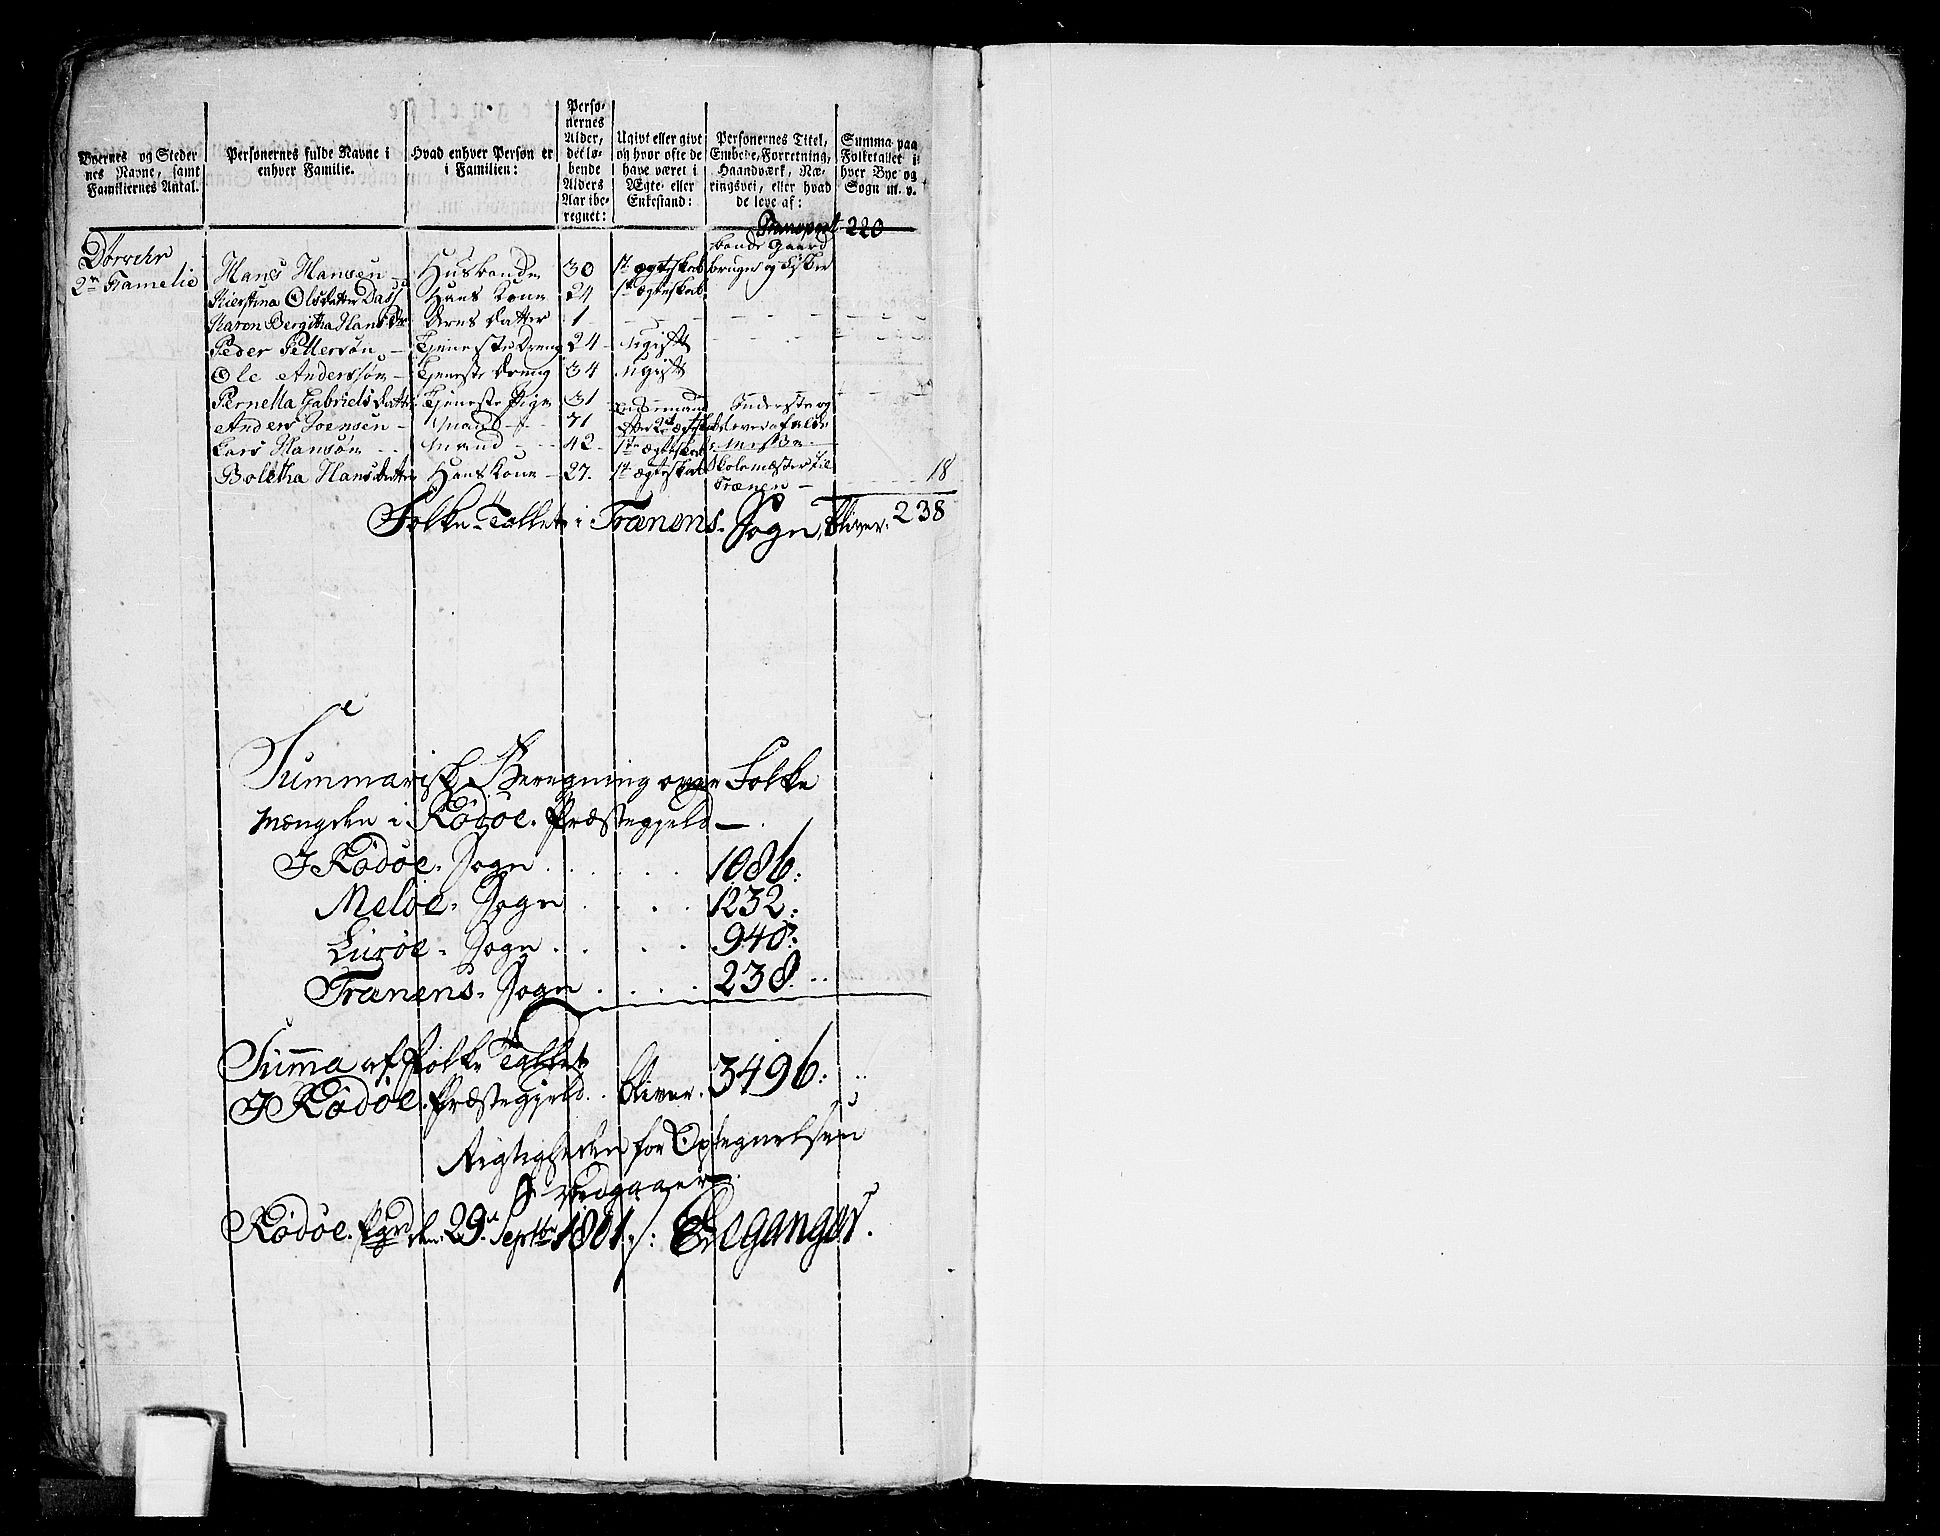 Byernes og Steder
nes Navne, samt
Familiernes Antal.
Personernes fulde Navne i
enhver Familie.
Hvad enhver Person er
i Familien:
Perso-
nernes
Alder,
det lø-
bende
Alders
Aar ibe-
regnet:
Ugivt eller givt
og hvor ofte de
have været i
Ægte- eller
Enkestand:
Personernes Titel,
Embede, Forretning,
Haandværk, Næ-
ringsvei, eller hvad
de leve af:
Summa paa
Folketallet i
hver Bye og
Sogn m. v.
Transport 220
Dørvehr
2de Famelie
bonde Gaard
Hans Hansen Husbonde 30 1te ægteskab bruger og Fisker
Kierstina Olsdatter Dass Hans Kone 24 1te ægteskab
Karen Bergitha Hansdr deres datter 1
Peder Pettersøn Tjeneste Dreng 24 Ugift
Ole Anderssøn Tjeneste Dreng 34 Ugift
Pernella Gabrielsdatter Tjeneste Pige 31
Anders Joensen Mand 71
Lars Hansøn Mand 42 1te ægteskab
Bolitha Hansdatter Hans Kone 27 1te ægteskab Skolemester til
Trænen 18
Folke-Tallet i Trænens Sogn bliver 238
Summarisk Beregning over Folke
mængden i Rødøe Præstegjeld
I Rødøe Sogn 1086
Meløe Sogn 1232
Lurøe Sogn 940
Trænens Sogn 238
Summa af Folke Tallet
I Rødøe Præstegjeld bliver 3496
Rigtigheden for Optegnelsen
vedgaaer
Rødøe Pgrd den 29de Septbr 1801